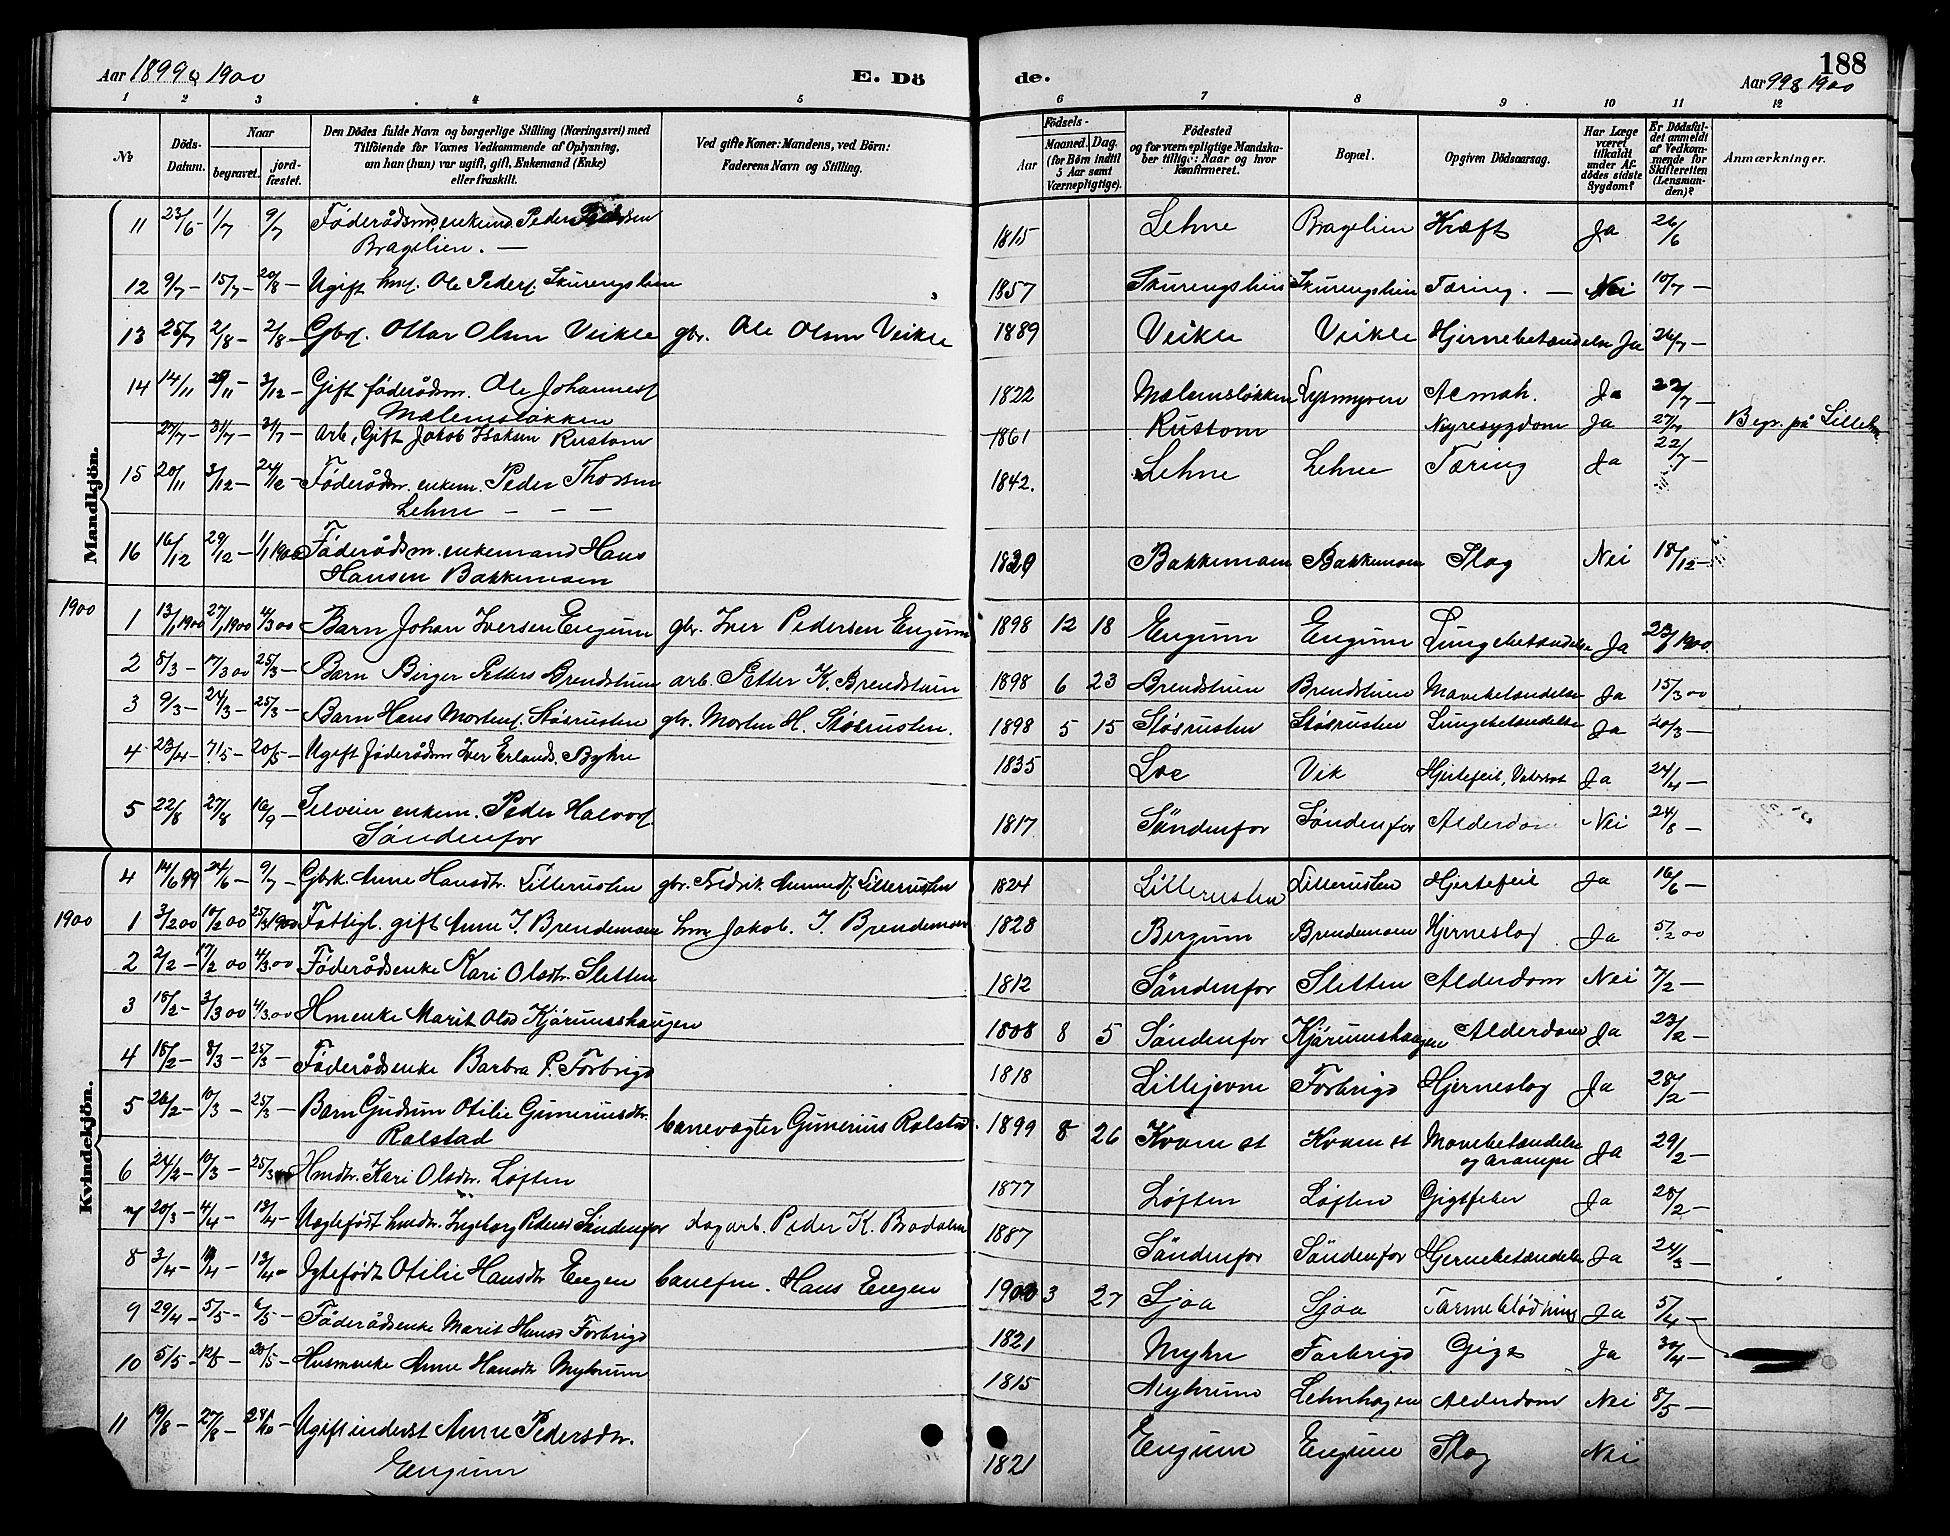 Aar 1899 & 1900 E. Dö de. Aar 99 & 1900 188
1 2 3 4 5 6 7 8 9 10 11 12
No Döds-Datum. Naar begravet. jordfæstet. Den Dödes fulde Navn og borgerlige Stilling (Næringsvei) med Tilföiende for Voxnes Vedkommende af Oplysning, om han (hun) var ugift, gift, Enkemand (Enke) eller fraskilt. Ved gifte Koner: Mandens, ved Börn: Faderens Navn og Stilling. Födsels- Aar Maaned. Dag. (for Börn indtil 5 Aar samt Værnepligtige). Födested og for værnepligtige Mandskaber tillige: Naar og hvor konfirmeret. Bopæl. Opgiven Dödsaarsag. Har Læge været tilkaldt under Afdödes sidste Sygdom? Er Dödsfaldet anmeldt af Vedkommende for Skifteretten (Lensmanden)? Anmærkninger.
Mandkjön.
11 23/6 - 1/7 9/7 Föderådsm, enkem. Peder Pedersen Bragelien. — 1815 Lehne Bragelien Kræft Ja 26/6
12 9/7 - 15/7 - 20/8 - Ugift hmf. Ole Peders. Skurengslien 1857 Skurengslien Skurengslien Tæring. — Nei 10/7 -
13 25/7 2/8 - 2/8 - Gbrs. Ottar Olsen Veikle gbr. Ole Olsen Veikle 1889 Veikle Veikle Hjernebetændelse Ja 26/7 -
14 14/11 29/11 - 3/12 - Gift föderådsm. Ole Johannes. Mælumsløkken 1822 Mælumsløkken Lysmyren Ja 22/7 -
27/7 - 31/7 - 31/7 - Arb, Gift Jakob Isaksen Rustom 1861 Rustom Nyresygdom Ja 27/7 Begr. på Lilleh
15 20/11 3/12 - 24/12 - Föderådsm. enkem. Peder Thorsen Lehne — — — 1842. Lehne Lehne Tæring Ja 22/7 -
16 16/12 29/12 - 1/1 1900 Föderådsm. enkemand Hans Hansen Bakkemoen 1820 Bakkemoen Bakkemoen Slag Nei 18/12 -
1900 1 13/1 1900 27/1 1900 4/3 00 Barn Johan Iversen Engum gbr. Iver Pedersen Engum 1898 12 18 Engum Engum Lungebetændelse Ja 1900
2 8/3 - 17/3 00 25/3 - Barn Birger Petters Brendstuen arb. Petter K. Brendstuen 1898 6 23 Brendstuen Brendstuen Mavebetændelse Ja 15/3 00
3 9/3 - 24/3 - 25/3 - Barn Hans Mortens. Støsrusten gbr. Morten H. Støsrusten. 1898 5 15 Støsrusten Støsrusten Lungebetændelse Ja 20/3 -
4 23/4 - 7/5 - 20/5 - Ugift föderådsm Iver Erlands. Byhre 1835 Loe Vik Hjertefeil, Vatersot Ja 24/4 -
5 22/8 27/8 16/9 - Selveier enkem. Peder Halvors. Söndenfor 1817 Söndenfor Söndenfor Alderdom Nei 24/8 -
Kvindekjön.
4 14/6 99 24/6 - 9/7 - Gbrk. Anne Hansdtr. Lillerusten gbr. Fredrik Amunds. Lillerusten 1824 Lillerusten Lillerusten Hjertefeil Ja 16/6 -
1900 1 3/2 00 10/2 00 25/3 1900 Fattigl. gift Anne J. Brendemoen hm Jakob. J. Brendemoen 1828 Bergum Brendemoen Hjerneslag Ja 5/2 00
2 2/2 - 17/2 00 4/3 00 Föderådsenke Kari Olsdtr. Sletten 1812 Söndenfor Sletten Alderdom Nei 7/2 -
3 18/2 - 3/3 00 4/3 00 Hmenke Marit Olsd Kjörumshaugen 1808 8 5 Söndenfor Kjörumshaugen Alderdom Ja 23/2 -
4 18/2 - 8/3 - 25/3 - Föderådsenke Barbra P. Forbrigd 1818 Lillejevne Forbrigd Hjerneslag Ja 28/2 -
5 26/2 - 10/3 - 25/3 - Barn Gudrun Otilie Guneriusdtr. Rolstad banevogter Gunerius Rolstad. 1899 8 26 Kvam st Kvam st Mavebetændelse og krampe Ja 29/2 -
6 24/2 - 10/3 - 25/3 Hmdtr. Kari Olsdtr. Løften 1877 Løften Løften Gigtfeber Ja 28/2 -
7 20/3 - 4/4 - 13/4 - Uægtefödt hmdtr. Ingeborg Pedersd Söndenfor dagarb. Peder K. Brodalen 1887 Söndenfor Söndenfor Hjernebetændelse Ja 24/3 -
8 3/4 - 10/4 - 13/4 - Ægtefödt Otilie Hansdtr Engen banefm. Hans Engen 1900 3 27 Sjoa Sjoa Tarmeblödning Ja 5/4 -
9 29/4 - 5/5 - 6/5 - Föderådsenke Marit Hansd Forbrigd 1821 Myhre Forbrigd Gigt Ja 30/4 -
10 5/5 - 12/5 - 20/5 - Husmenke Anne Hansdtr Myhrum 1815 Myhrum Lehnhagen Alderdom Nei 8/5 -
11 19/8 - 27/8 - Ugift inderst Anne Pedersdtr. Engum 1821 Engum Engum Slag Nei